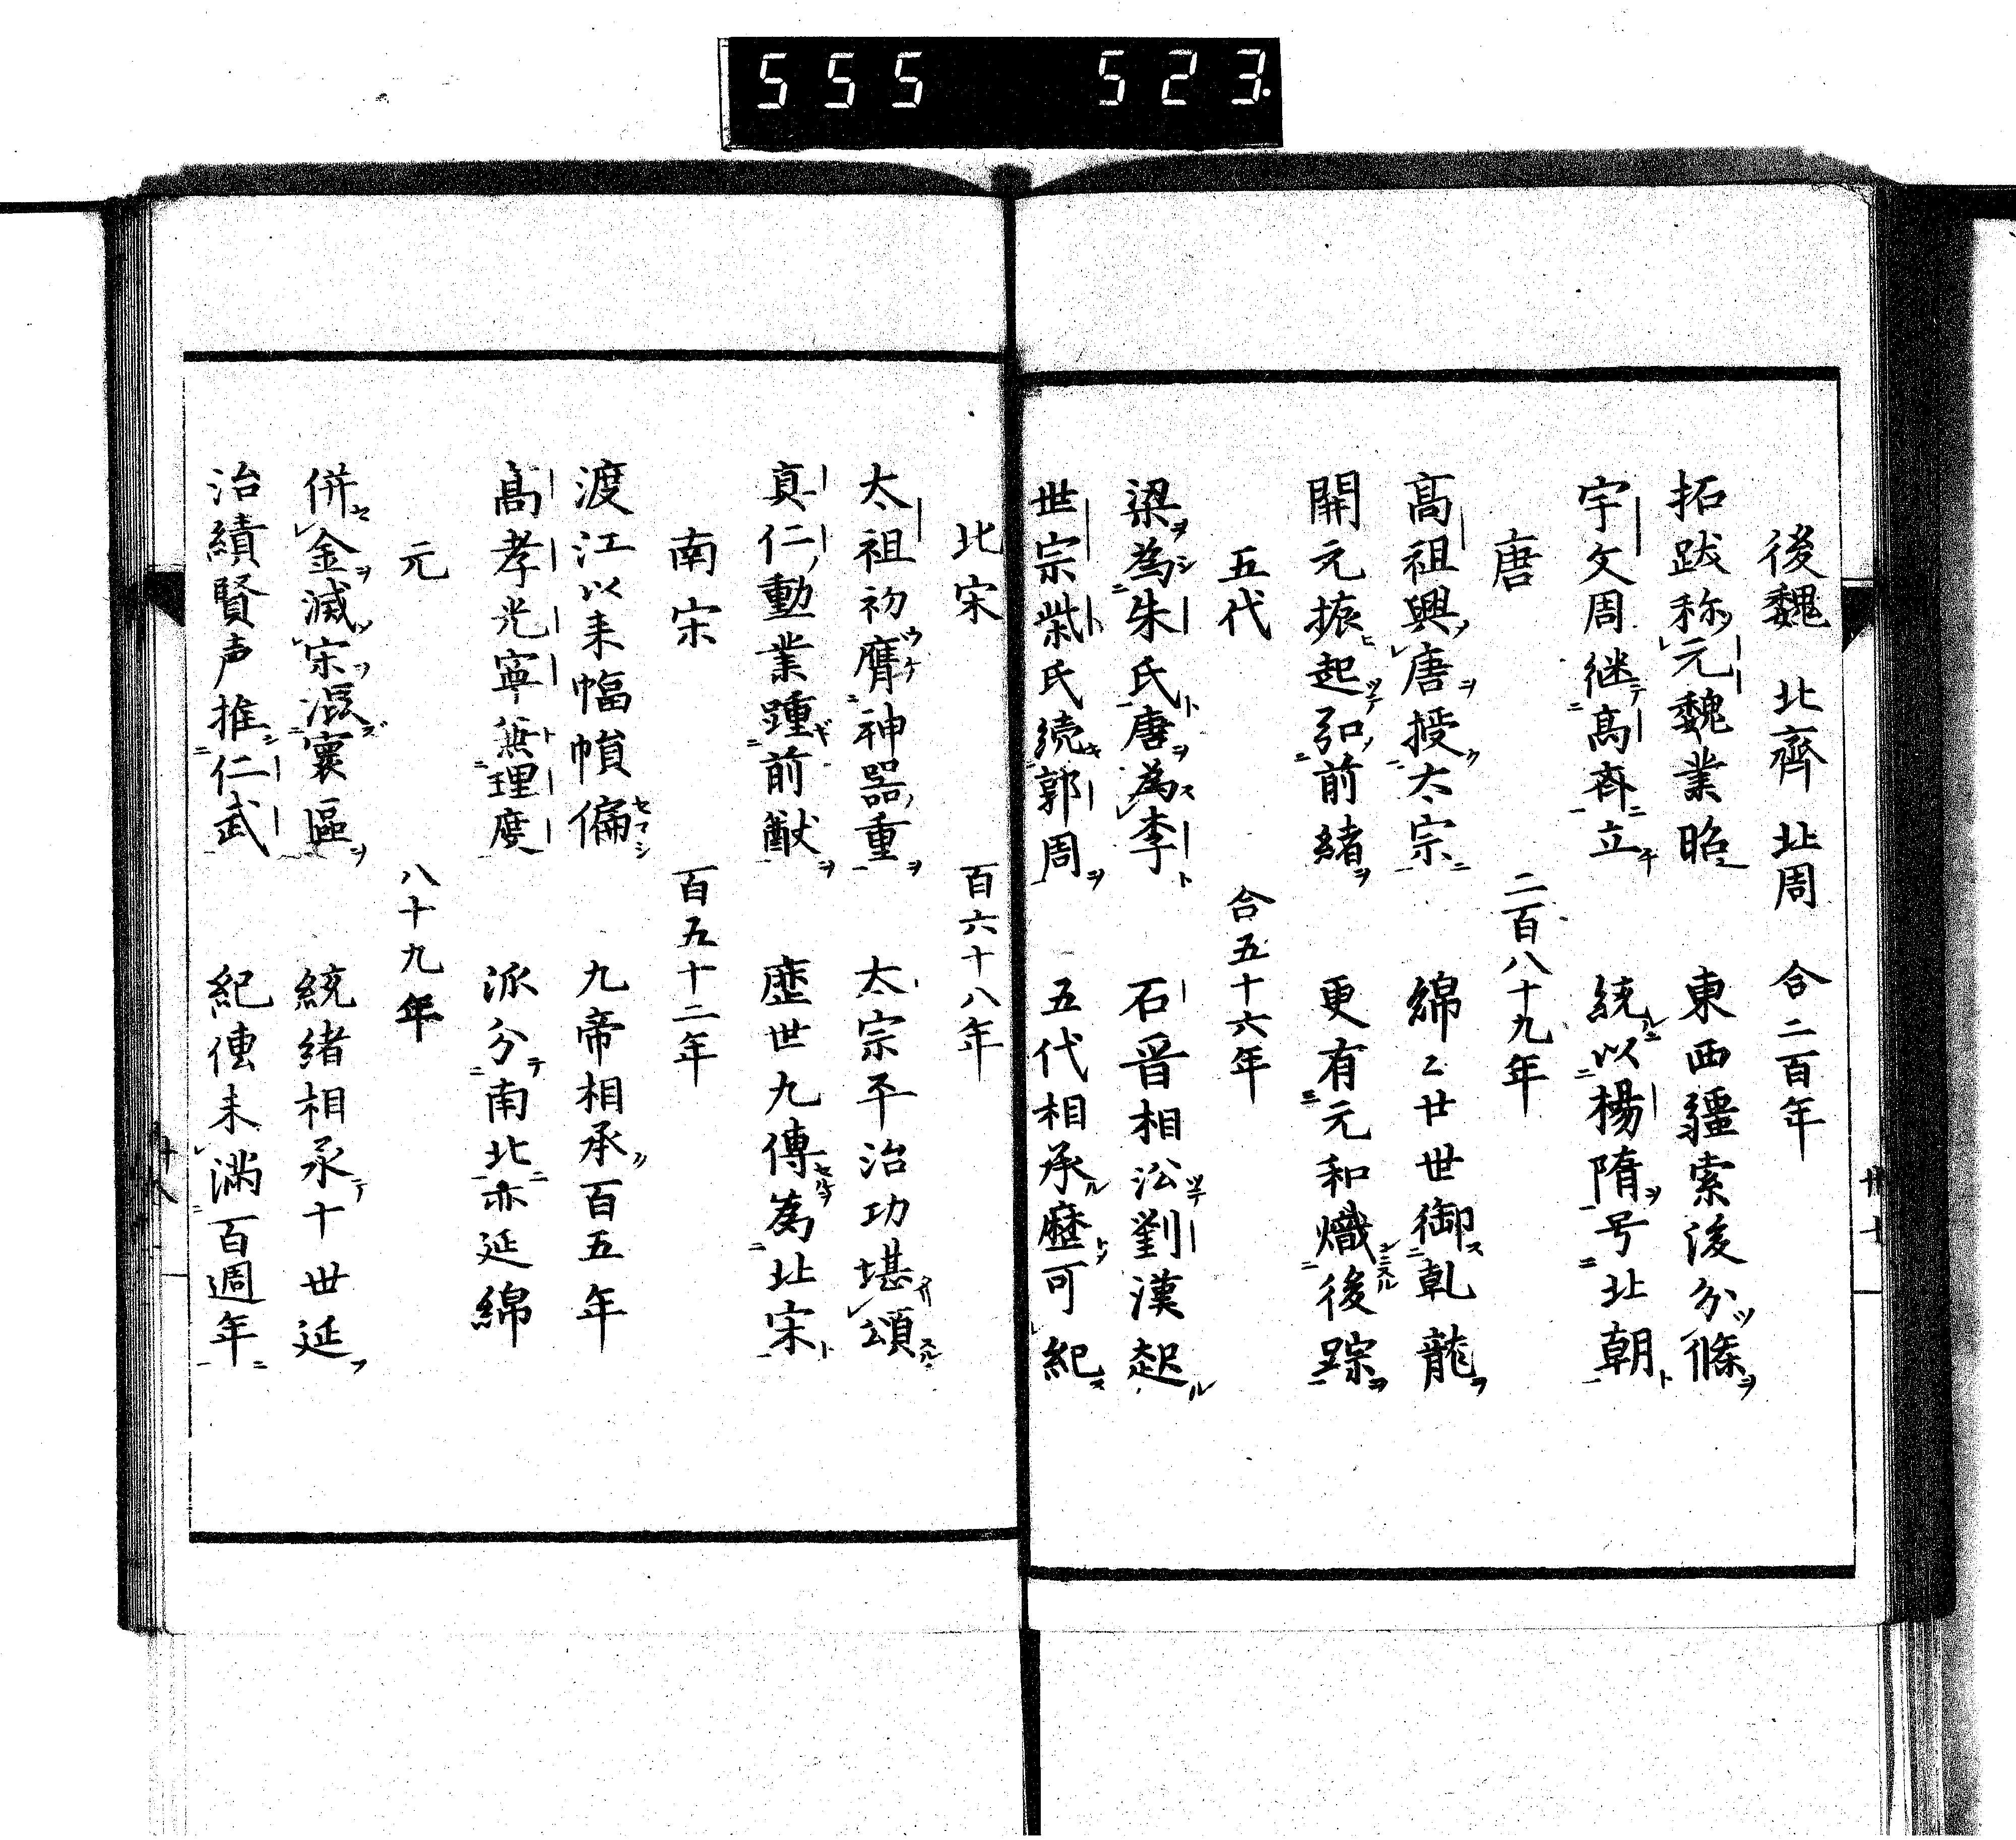 555 523.
後魏 北齊 北周 合二百年
拓跋称元魏業昭 東西疆索後分條
宇文周継髙斉立 統以楊隋号北朝
唐 二百八十九年
髙祖興唐授太宗 綿〻廿世御乹龍
開元振起弘前緒 更有元和熾後踪
五代 合五十六年
梁為朱氏唐為李 石晋相㳂劉漢起
世宗柴氏続郭周 五代相承歴可紀
北宋 百六十八年
太祖初膺神器重 太宗平治功堪頌
真仁勳業踵前猷 歴世九傳為北宋
南宋 百五十二年
渡江以来幅幀偏 九帝相承百五年
髙孝光寧兼理度 派分南北亦延綿
元 八十九年
併金滅宋混寰區 統緒相承十世延
治績賢声推仁武 紀傳未満百週年